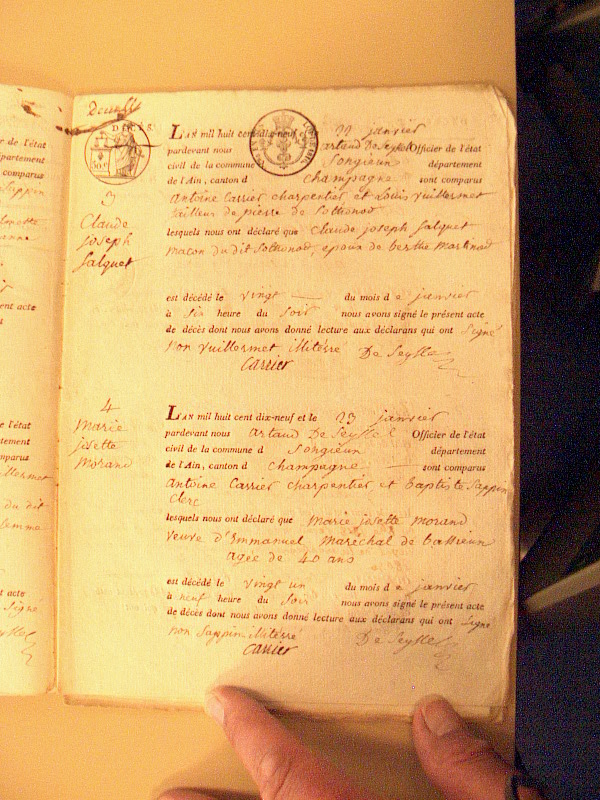 DÉCÈS
3
Claude
joseph
falquet
LAN mil huit cent dix-neuf et le 22 janvier
pardevant nous artaud De Seyssel Officier de l'état
civil de la commune d Songieux département
de l'Ain, canton d champagne sont comparus
antoine Carrier charpentier et Louis Vuillermet
tailleur de pierre de Sothonod
lesquels nous ont déclaré que Claude joseph falquet
macon du dit Sothonod, epoux de berthe Martinod
est décédé le vingt du mois d e janvier
à Six heure du Soir nous avons signé le présent acte
de décès dont nous avons donné lecture aux déclarans qui ont Signé
non Vuillermet illitérré De Seyssel
Carrier
4
Marie
josette
Morand
LAN mil huit cent dix-neuf et le 23 janvier
pardevant nous artaud De Seyssel Officier de l'état
civil de la commune d Songieux département
de l'Ain, canton d champagne sont comparus
antoine Carrier charpentier et baptiste Sappin
Clerc
lesquels nous ont déclaré que Marie josette Morand
Veuve d'Emmanuel Maréchal de
agée de 40 ans
est décédé le vingt un du mois d e janvier
à neuf heure du Soir nous avons signé le présent acte
de décès dont nous avons donné lecture aux déclarans qui ont Signé
non Sappin illitérré De Seyssel
Carrier